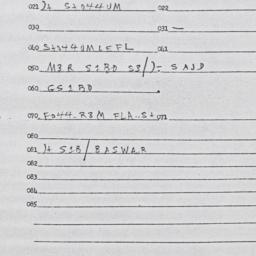 021 )+ S+044UM 022
030 031 —
040 S+044UMLEFL 041
050 M3R S1BD S3/)= SAJD
060 GS1BD .
070 F044-R3M FLA..S+ 071
080
081 )+ S1B/BASWAR
082
083
084
085